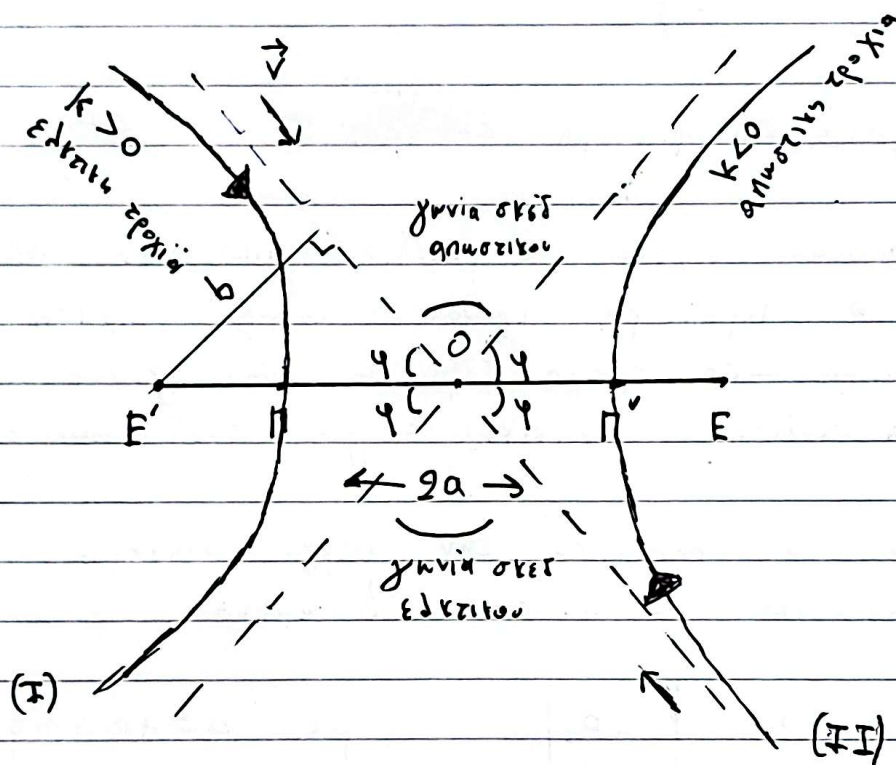 v
k > 0
ελκτική τροχιά
k < 0
απωστική τροχιά
γωνία σκεδ
απωστικου
b
φ
O
φ
E'
Π
φ
φ
Π'
E
2a
γωνία σκεδ
ελκτικου
(I)
(II)